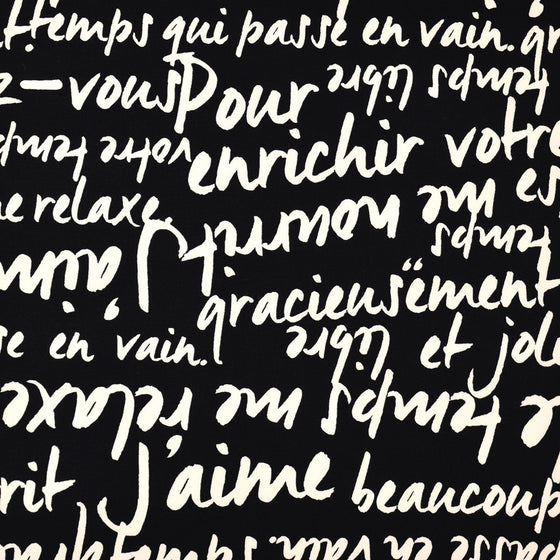 temps qui passe en vain.
temps libre
z-vous Pour
votre temps
enrichir votre
me relaxe.
me nourrit
es
temps
J'aime
gracieusëment
se en vain.
libre
et joli
temps me relaxe
rit
J'aime
beaucoup
temps. en vain.
passe